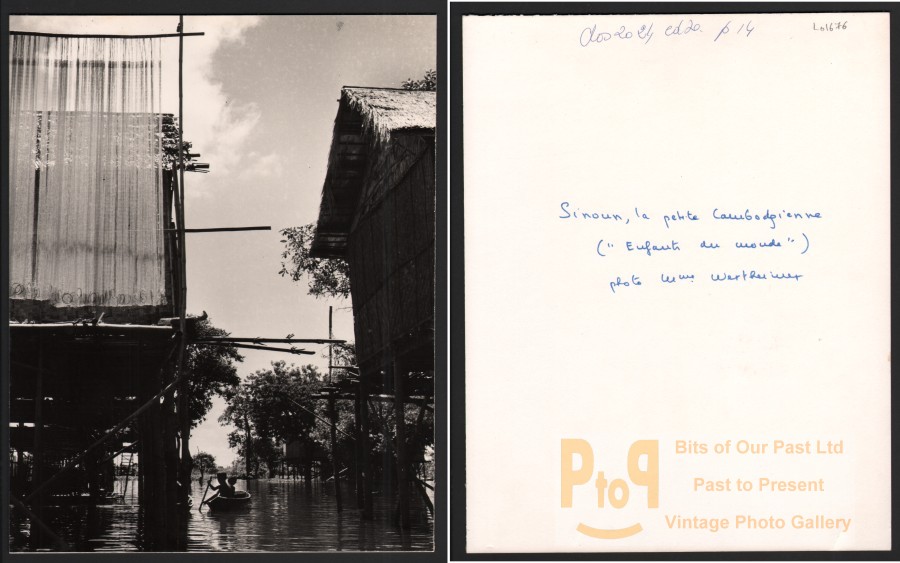 p 14
Sinoun, la petite Cambodgienne
("Enfants du monde")
photo Mme Wertheimer
PtoP
Bits of Our Past Ltd
Past to Present
Vintage Photo Gallery